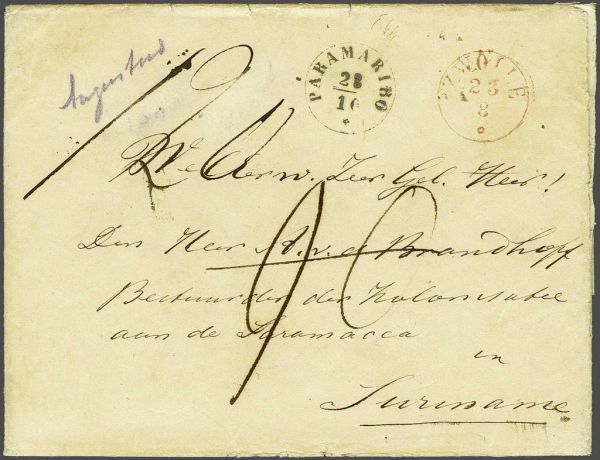 Augustus
PARAMARIBO
28
10
ZWOLLE
23
8
1/2
WelEerw. Zeer Gel. Heer!
Den Heer A. v. d. Brandhoff
90
Bestuurder der Kolonisatie
aan de Saramacca
in
Suriname